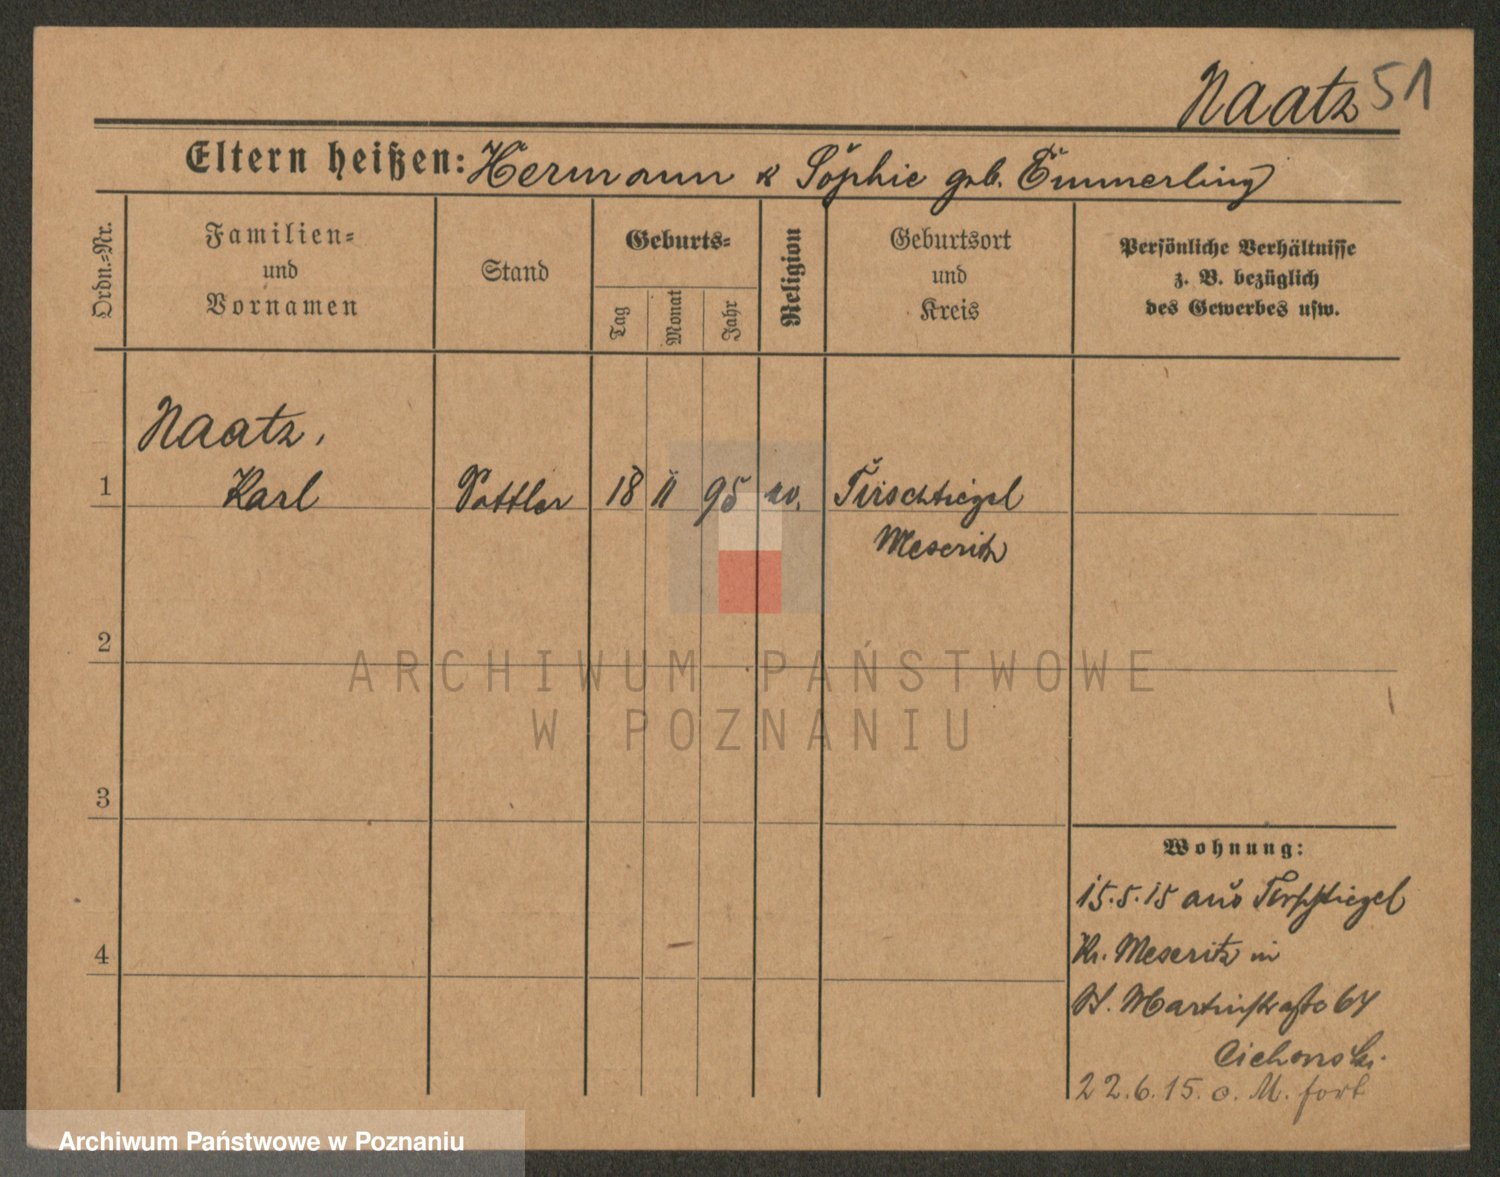 Naatz 51
Eltern heißen: Hermann & Sophie geb. Emmerling
Ordn.-Nr.
Familien-
und
Vornamen
Stand
Geburts-
Tag
Monat
Jahr
Religion
Geburtsort
und
Kreis
Persönliche Verhältnisse
z. B. bezüglich
des Gewerbes usw.
Naatz,
1 Karl Sattler 18 II 95 ev. Tirschtiegel
Meseritz
2
ARCHIWUM PAŃSTWOWE
W POZNANIU
3
Wohnung:
15.5.15 aus Tirschtiegel
4
Kr. Meseritz in
St. Martinstraße 64
Cichonski.
22.6.15. o. M. fort
Archiwum Państwowe w Poznaniu